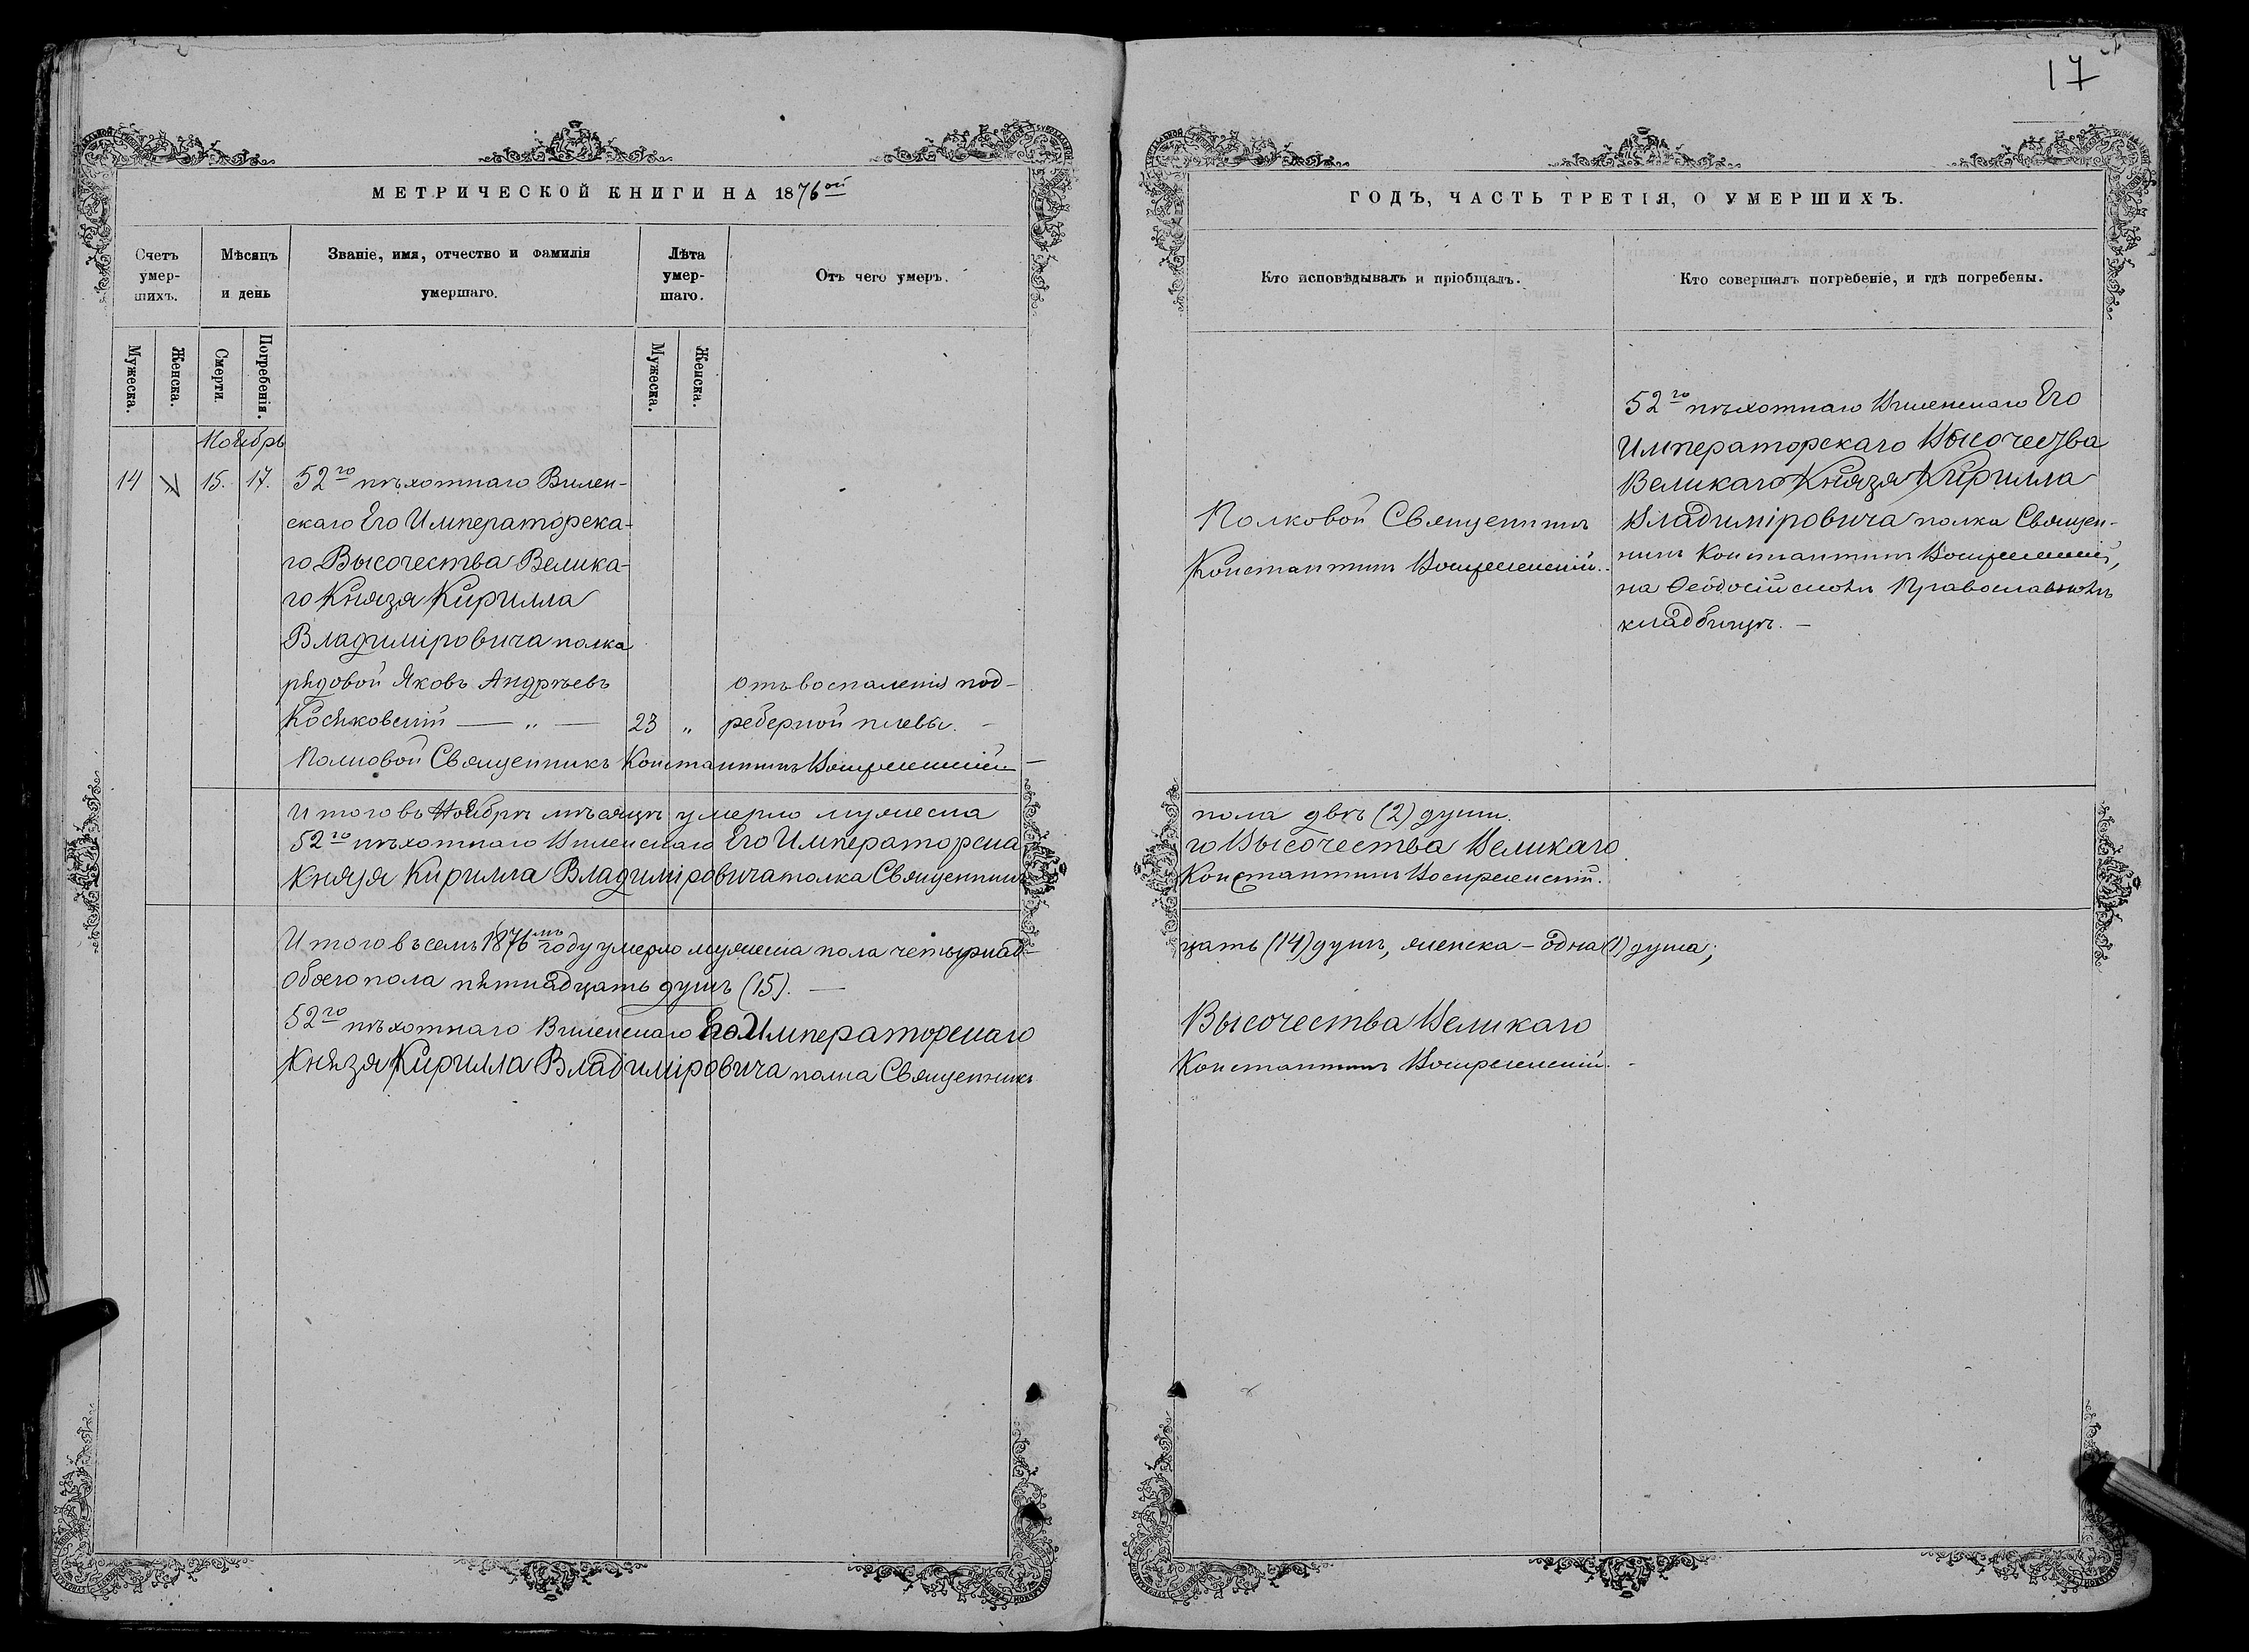 17
МЕТРИЧЕСКОЙ КНИГИ НА 1876ой
Счетъ умер-шихъ.
Мѣсяцъ и день
Званіе, имя, отчество и фамилія умершаго.
Лѣта умер-шаго.
Отъ чего умеръ.
Мужеска.
Женска.
Смерти.
Погребенія.
Мужеска.
Женска.
Ноябрь
14 15. 17. 52го пѣхотнаго Вилен-
скаго Его Императорска-
го Высочества Велика-
го Князя Кирилла
Владиміровича полка
рядовой Яковъ Андреевъ
Косяковскій — „ — 23 „
отъ воспаленія под-
реберной плевы. -
Полковой Священникъ Константинъ Воскресенскій —
Итого въ Ноябрѣ мѣсяцѣ умерло мужеска
52го пѣхотнаго Виленскаго Его Императорска
Князя Кирилла Владиміровича полка Священникъ
Итого въ семъ 1876мъ году умерло мужеска пола четырнад-
Обоего пола пятнадцать душъ (15). —
52го пѣхотнаго Виленскаго Его Императорскаго
Князя Кирилла Владиміровича полка Священникъ
ГОДЪ, ЧАСТЬ ТРЕТІЯ, О УМЕРШИХЪ.
Кто исповѣдывалъ и пріобщалъ.
Кто совершалъ погребеніе, и гдѣ погребены.
Полковой Священникъ
Константинъ Воскресенскій.
52го пѣхотнаго Виленскаго Его
Императорскаго Высочества
Великаго Князя Кирилла
Владиміровича полка Священ-
никъ Константинъ Воскресенскій,
на Ѳеодосійскомъ Православномъ
кладбищѣ. —
пола двѣ (2) души.
го Высочества Великаго
Константинъ Воскресенскій.
цать (14) душъ, женска - одна (1) душа;
Высочества Великаго
Константинъ Воскресенскій. -